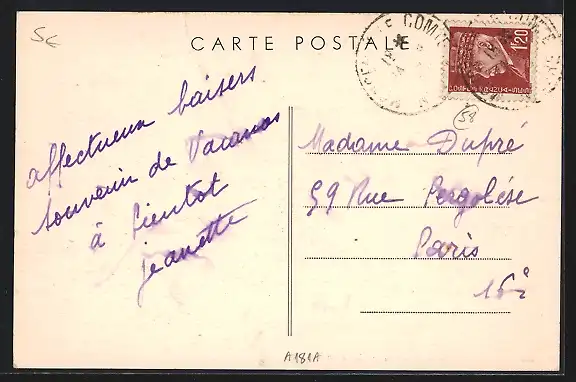 5c
CARTE POSTALE
LE COMTE
1F20
54
affectueux baisers
souvenir de Vacances
à bientot
jeanette
Madame Dupré
59 Rue Pergolése
Paris
16è
A181A